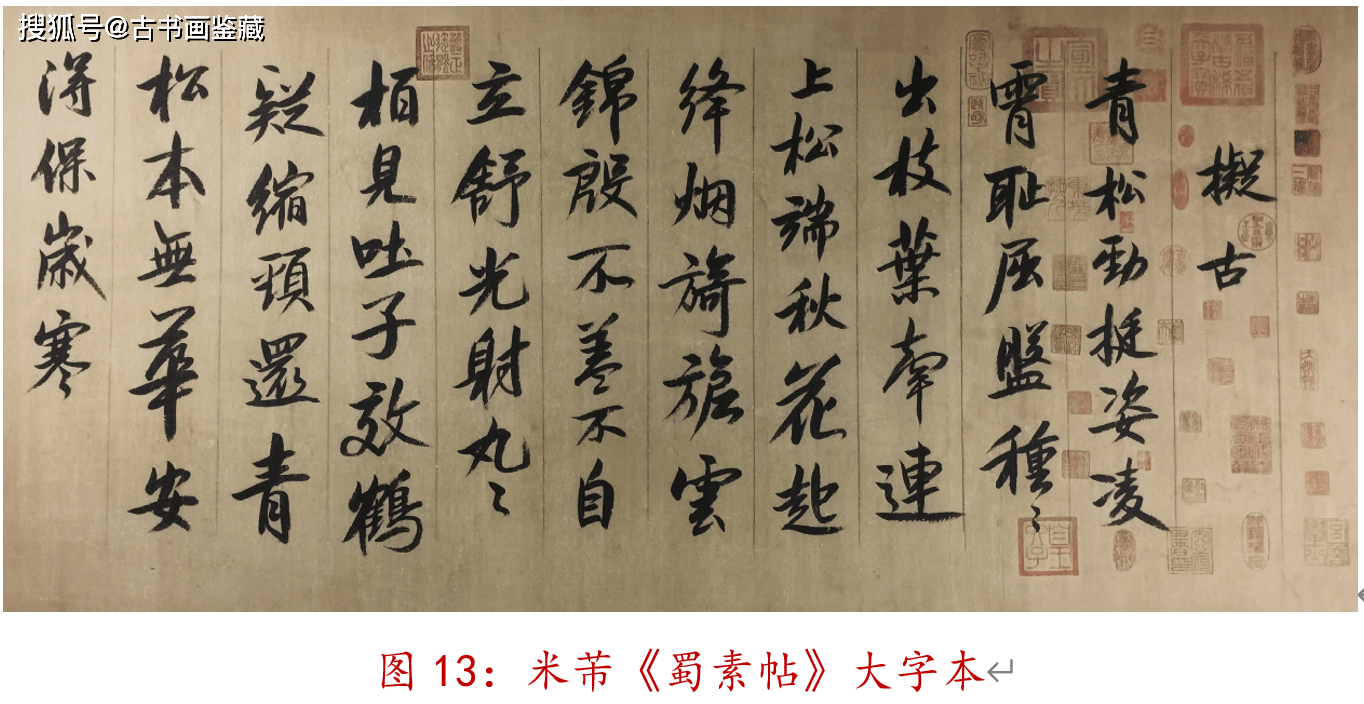 搜狐号@古书画鉴藏
擬古
青松勁挺姿凌
霄耻屈盤種〻
出枝葉牽連
上松端秋花起
絳烟旖旎雲
錦殷不羞不自
立舒光射丸〻
栢見吐子效鶴
疑縮頸還青
松本無華安
淂保歲寒
图 13：米芾《蜀素帖》大字本